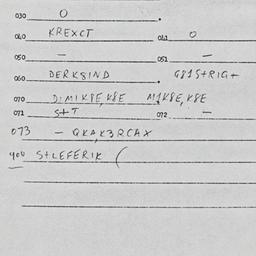 030 O
040 KREXCT 041 O
050 — 051 —
060 DERK8IND G81S+RIG+
070 D:MIK8E, K8E M1K8E, K8E
071 S+T 072 —
073 — QKAK3RCAX
400 S+LEFERIK (